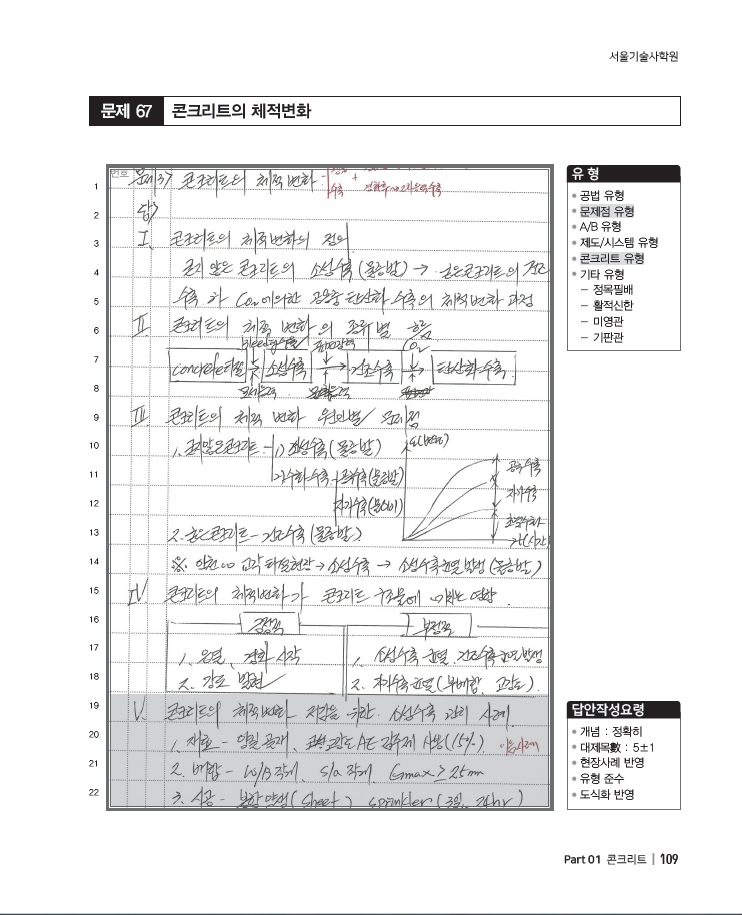 서울기술사학원
문제 67 콘크리트의 체적변화
번호
1 콘크리트의 체적변화 수축 +
2 답)
3 I. 콘크리트의 체적변화의 정의
4 굳지 않은 콘크리트의 소성수축(물증발) → 굳은콘크리트의 건조
5 수축 과 Co₂에의한 탄산화 수축의 체적변화 과정
6 II. 콘크리트의 체적 변화의 종류별 흐름
7 concrete타설 소성수축 → 건조수축 → 탄산화수축
Co₂
8
9 III. 콘크리트의 체적 변화 원인별 문제점
10 1. 굳지않은콘크리트 - 1) 소성수축(물증발)
11 2) 수화수축
12 자기수축
13 2. 굳은콘크리트 - 건조수축(물증발)
건조수축
자기수축
t(시간)
14 ※. 인천 교각타설현장 → 소성수축 → 소성수축균열 발생(물증발)
15 IV. 콘크리트의 체적변화가 콘크리트 구조물에 미치는 영향.
16 긍정적 부정적
17 1. 응결, 경화 시작 1. 소성수축 균열, 건조수축균열발생
18 2. 강도 발현 2. 자기수축균열(부배합, 고강도).
19 V. 콘크리트의 체적변화 저감을 위한 소성수축 관리 사례.
20 1. 재료 - 양질 골재, AE 감수제 사용(15%)
21 2. 배합 - W/B작게, S/a 작게, Gmax≥25mm
22 3. 시공 - 양생(Sheet) sprinkler(3일, 24hr)
유 형
• 공법 유형
• 문제점 유형
• A/B 유형
• 제도/시스템 유형
• 콘크리트 유형
• 기타 유형
– 정목필배
– 활적신한
– 미영관
– 기판관
답안작성요령
• 개념 : 정확히
• 대제목數 : 5±1
• 현장사례 반영
• 유형 준수
• 도식화 반영
Part 01 콘크리트 | 109